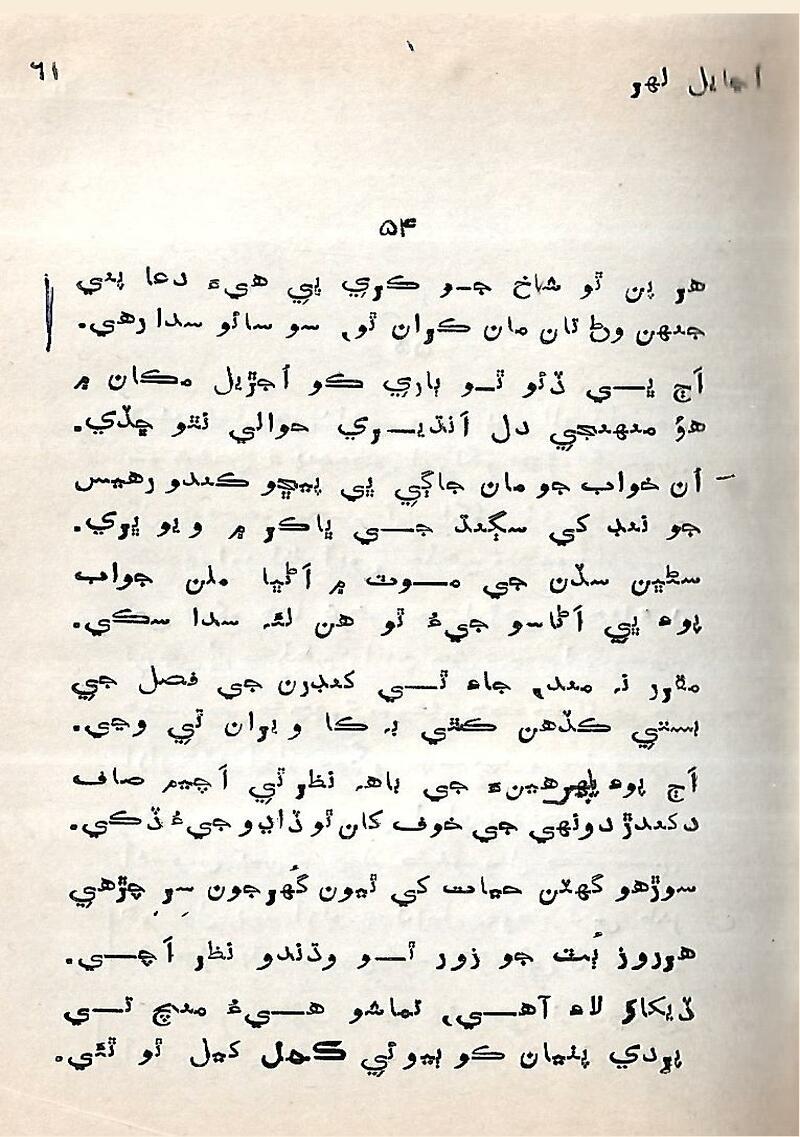 اڃايل لهر
٦١
۵۴
هر پن ٿو شاخ جو ڪري ٻي هيءَ دعا پئي
جنهن وڻ تان مان ڪران ٿو، سو سائو سدا رهي.
اڄ ڀي ڏئو ٿو ٻاري ڪو اُجڙيل مڪان ۾
هوُ منهنجي دل اَنڌيري حوالي نٿو ڇڏي.
اُن خواب جو مان جاڳي ڀي پيڇو ڪندو رهيس
جو ننڊ کي سڳنڌ جي ڀاڪر ۾ ويو ڀري.
سڻڀن سڏن جي موت ۾ اَڻيا ملن جواب
پوءِ ڀي اَڻاسو جيءُ ٿو هن لئه سدا سڪي.
مقرر نه مند، جاءِ ٿي کنڊرن جي فصل جي
بستي ڪڏهن ڪٿي به ڪا ويران ٿي وڃي.
اڄ پوءِ پهرهينءَ جي باهه نظر ٿي اَچيم صاف
دکندڙ دونهي جي خوف کان ٿو ڏاڍو جيءُ ڏڪي.
سوڙهو گهٽن حيات کي ٿيون گُهرجون سِر چڙهي
هرروز ٻُت جو زور ٿو وڌندو نظر اَچي.
ڏيکاءَ لاءِ آهي، تماشو هيءُ منچ تي
پردي پٺيان ڪو ٻيو ئي کيل ٿو ٿئي.